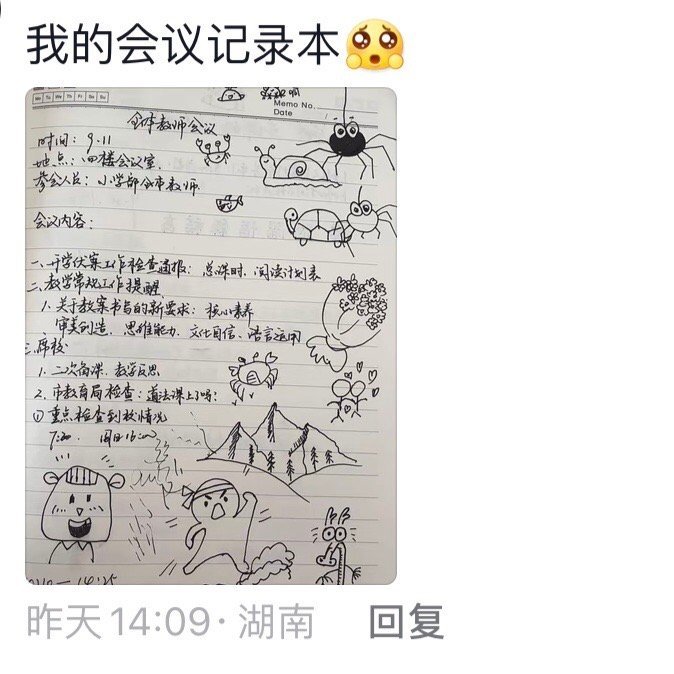 我的会议记录本🥺
Mo Tu We Th Fr Sa Su
Memo No.
Date
全体教师会议
时间：9.11
地点：四楼会议室.
参会人员：小学部全体教师
会议内容：
一、开学伏案工作检查通报：总课时、阅读计划表
二、教学常规工作提醒
1.关于教案书写的新要求：核心素养
审美创造、思维能力、文化自信、语言运用
1.二次备课、教学反思
2.市教育局检查：道法课上了吗？
①重点检查到校情况
昨天14:09·湖南
回复